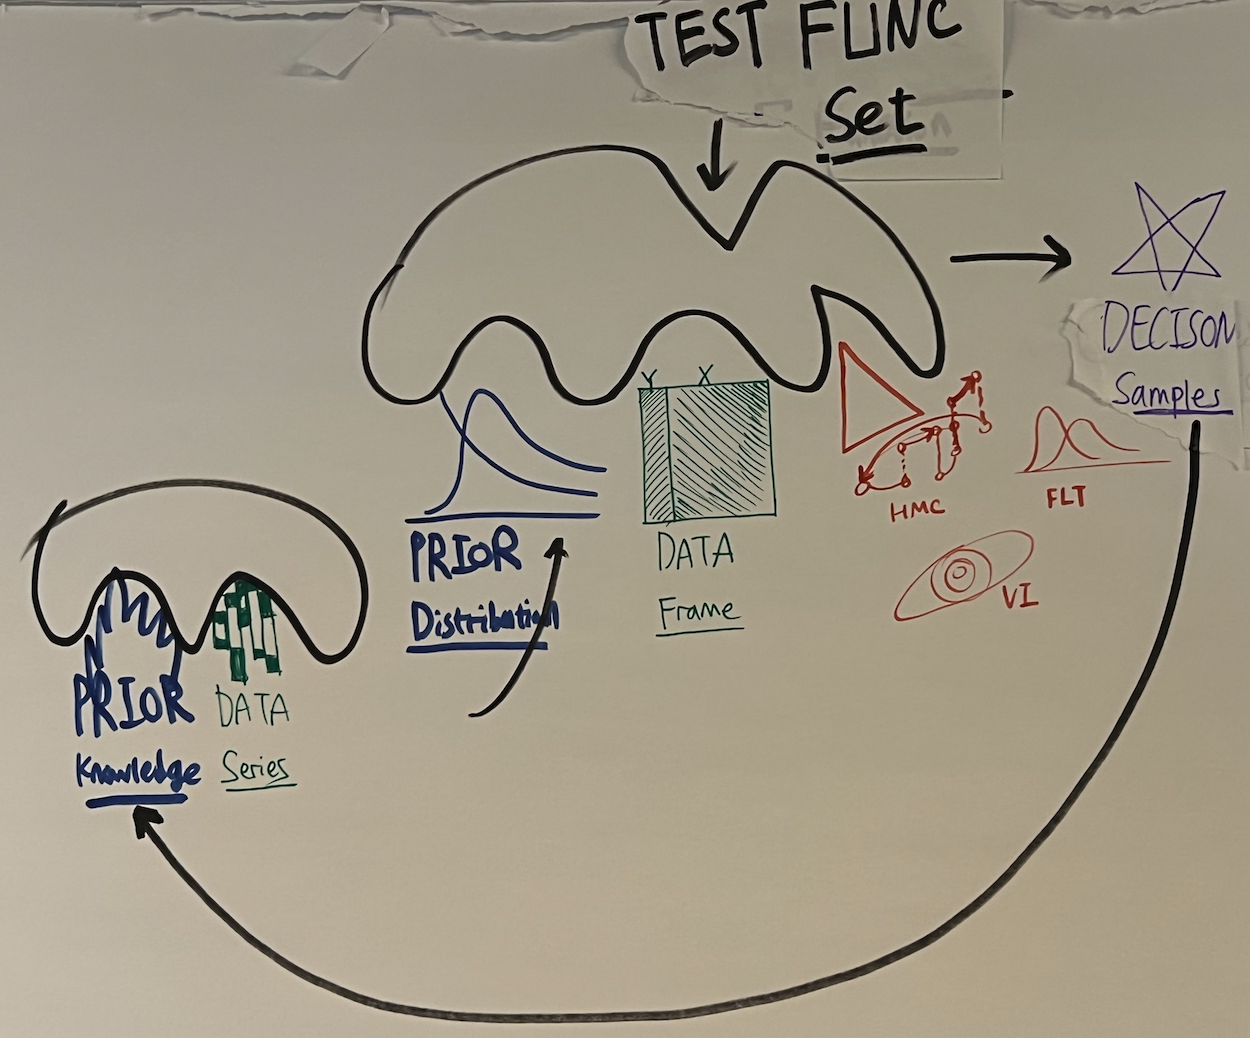 TEST FUNC
Set
DECISON
Samples
Y X
HMC
FLT
VI
PRIOR
Distribution
DATA
Frame
PRIOR
Knowledge
DATA
Series